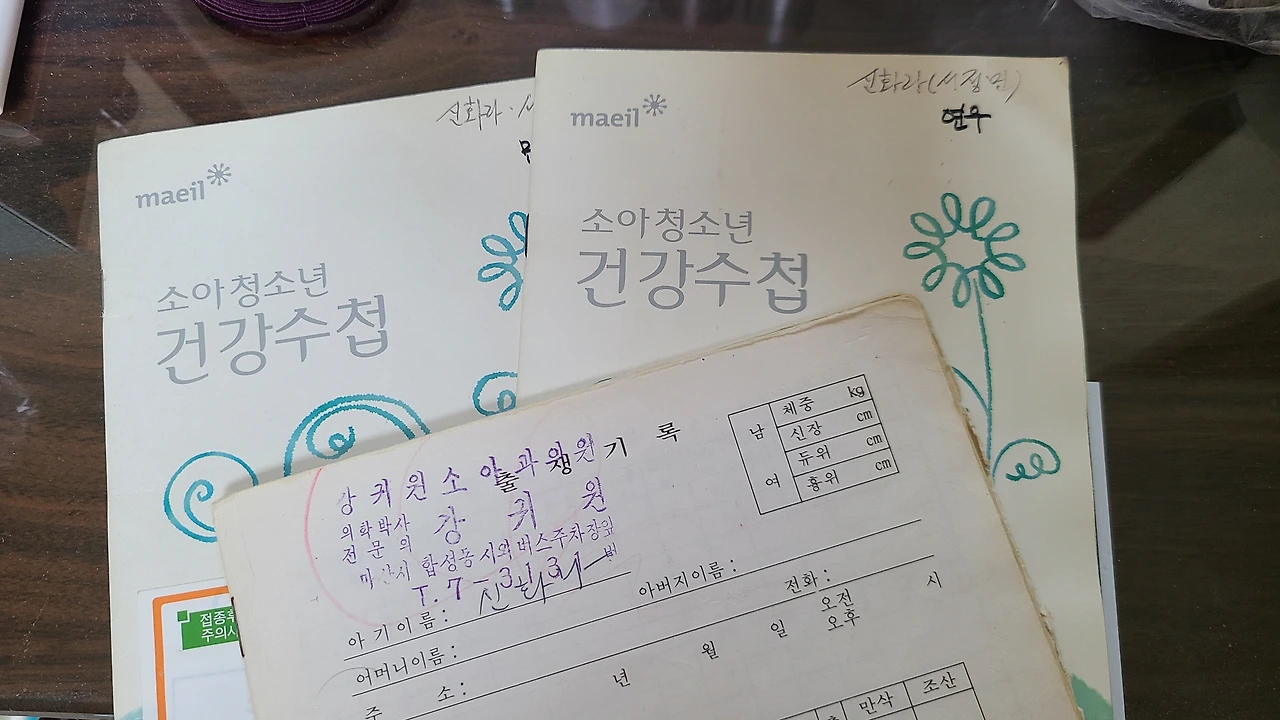 maeil
소아청소년
건강수첩
신화라
maeil
소아청소년
건강수첩
신화라(서정민)
연우
출생기록
강귀원소아과의원
의학박사
전문의
강귀원
마산시 합성동 시외버스주차장앞
T. 7-3131번
남
여
체중 kg
신장 cm
두위 cm
흉위 cm
아기이름: 신화라
어머니이름:
아버지이름:
주소:
전화:
년 월 일 오전 오후 시
만삭
조산
접종후
주의사